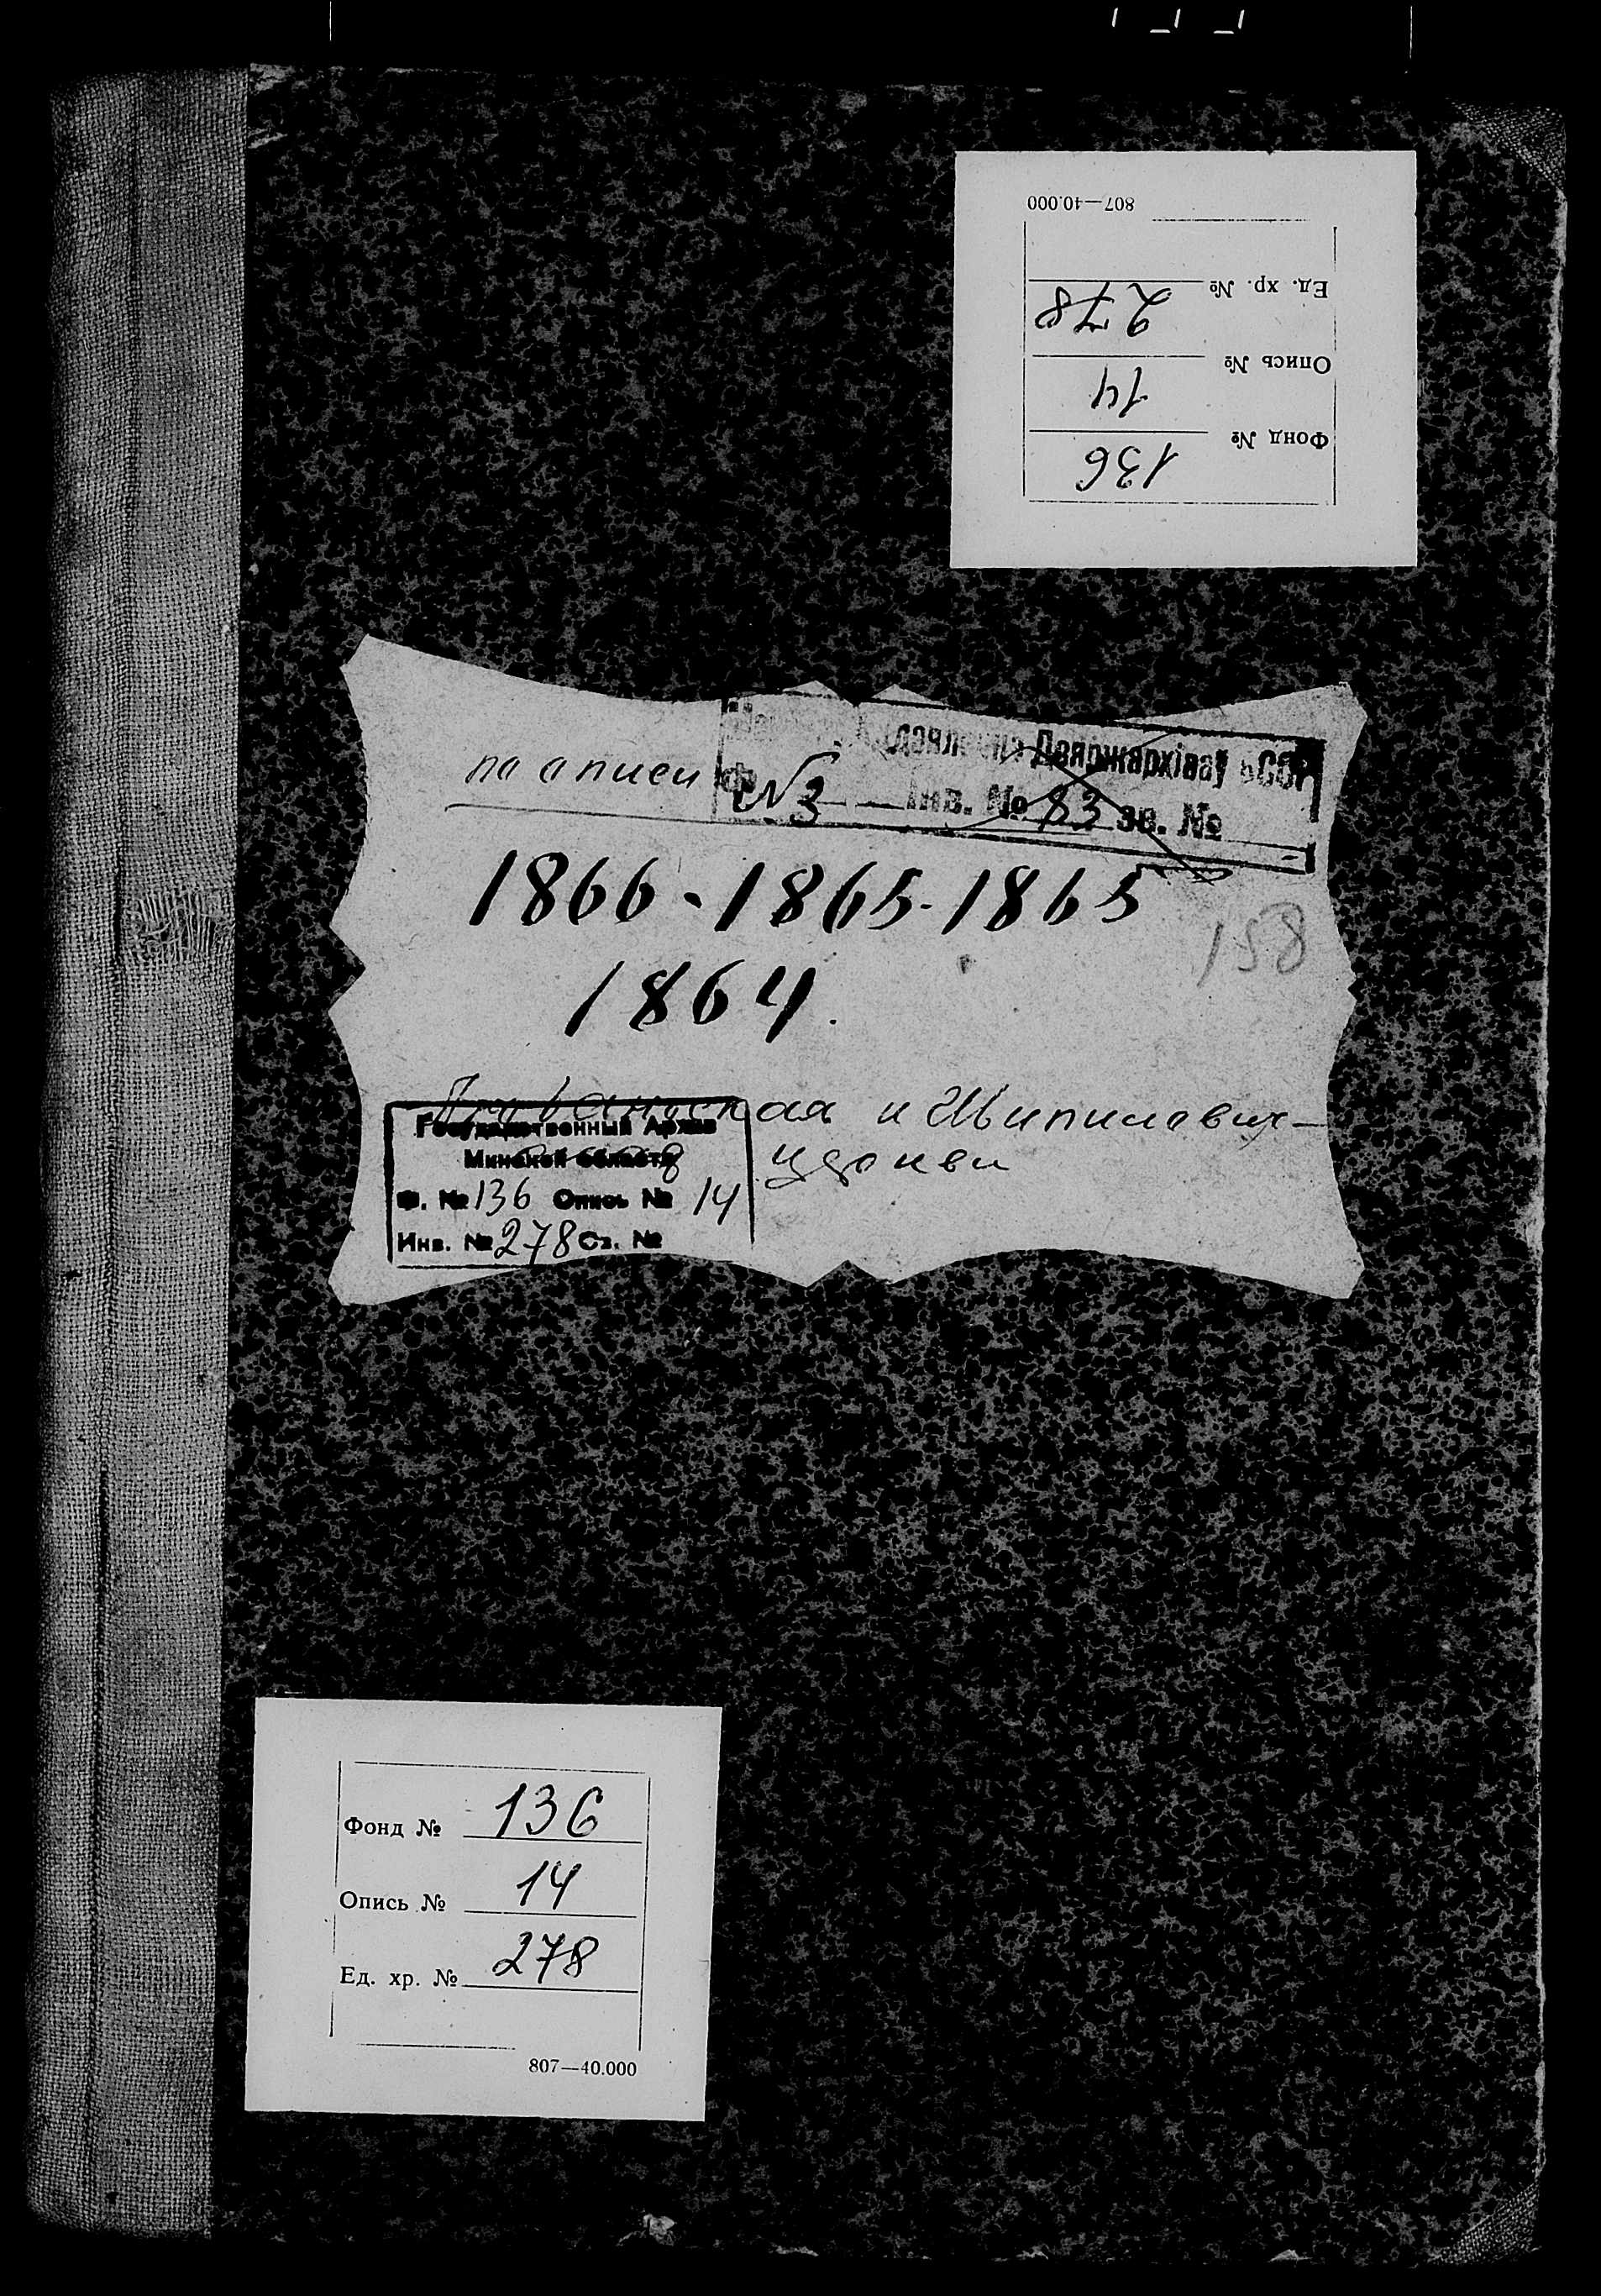 807—40.000
Ед. хр. № 278
Опись № 14
Фонд № 136
Дзяржархіваў БССР
по описи №3 Інв. № 83 зв. №
1866 - 1865 - 1865
158
1864.
и Шипиловичск
Государственный Архив
церкви
Минской области
Ф. № 136 Опись № 14
Инв. № 278 Св. №
Фонд № 136
Опись № 14
Ед. хр. № 278
807—40.000